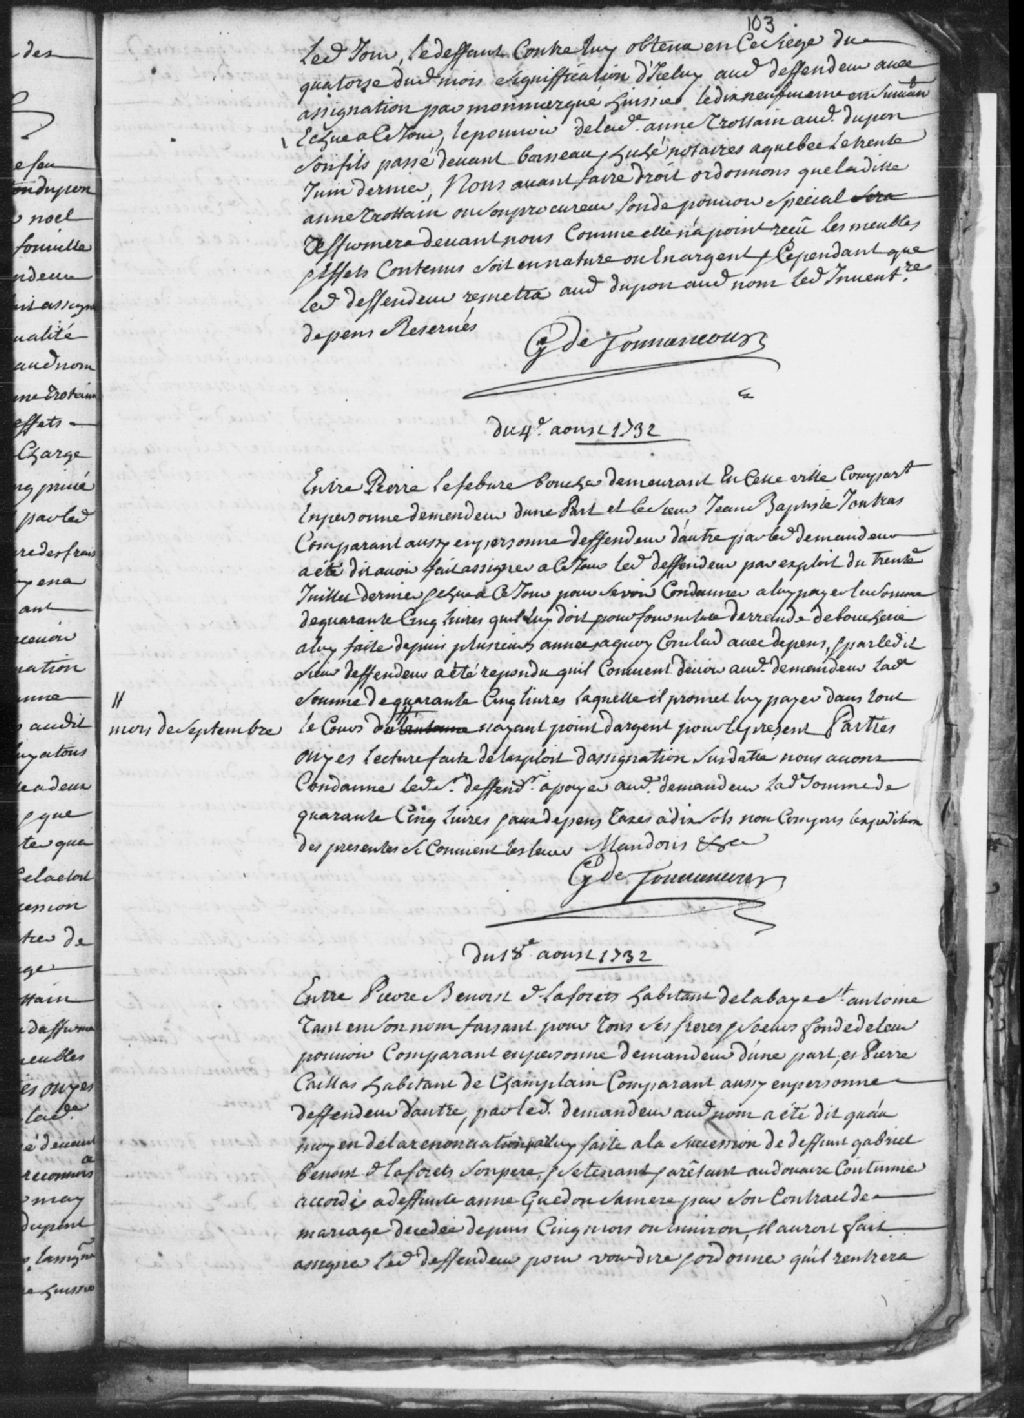 103
led. Jour, le deffaut Contre luy obtenu en Ce siege du
quatorse dud. mois signiffication d'Iceluy aud. deffendeur avec
assignation par monmerqué huissier le dix neufviesme en suivant
Echue a Ce Jour, le pouvoir de lad. anne Trottain aud. dupon
son fils passé devant boisseau, huché notaires a quebec Le trente
Juin dernier, Nous avant faire droit ordonnons que ladite
anne Trottain ou son procureur fondé de pouvoir special sera
affirmera devant nous Comme elle n'a point reçû les meubles
& Effets Contenus soit en nature ou En argent, & Cependant que
led. deffendeur remettra aud. dupon aud. nom led. Invent.re
depens Reservés
G de Tonnancour
du 4e. aoust 1732
Entre Pierre Lefebvre boucher demeurant En Cette ville Compart
En personne demendeur d'une Part et le sieur Jean Baptiste Joutras
Comparant aussy en personne deffendeur d'autre par led. demandeur
a eté dit avoir fait assigner a Ce Jour led. deffendeur par exploit du trente
Juillet dernier Echue a Ce Jour pour se voir Condamner a luy payer la somme
de quarante Cinq livres qu'il luy doit pour fourniture de viande de boucherie
a luy faite depuis plusieurs années, a quoy Conclud avec depens, & par ledit
sieur deffendeur a eté repondu qu'il Convient devoir aud. demandeur lad.
somme de quarante Cinq livres laquelle il promet luy payer dans tout
//
mois de septembre
le Cours de l'automne n'ayant point d'argent pour Le present Parties
ouyes lecture faite de l'exploit d'assignation susdatté nous avons
Condamné led. sr. deffendr. a payer aud. demandeur lad. somme de
quarante Cinq livres & aux depens taxés a dix sols non Compris l'expedition
des presentes sy Convient les lever Mandons &ca
G de Tonnancour
du 18e aoust 1732
Entre Pierre Benoist d. laforets habitant de la baye st. antoine
tant en son nom faisant pour tous ses freres & soeurs fondé de leur
pouvoir Comparant en personne demandeur d'une part, et Pierre
Caillas habitant de Champlain Comparant aussy en personne
deffendeur d'autre, par led. demandeur aud. nom a eté dit qu'au
moyen de la renonciation par luy faite a la succession de deffunt gabriel
benoist d. laforets son pere, & se tenant & arêtant au douaire Coutumier
accordé a deffunte anne Guedon sa mere par son Contract de
mariage decedée depuis Cinq mois ou Environ, Il auroit fait
assigner led. deffendeur pour voir dire & ordonner qu'il rentrera